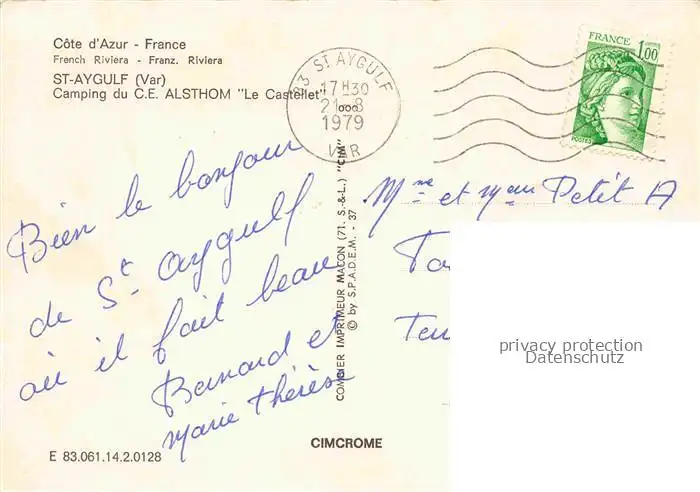 Côte d'Azur - France
French Riviera - Franz. Riviera
ST-AYGULF (Var)
Camping du C.E. ALSTHOM "Le Castellet"
83 St AYGULF
17H30
21-8
1979
VAR
FRANCE
1,00
POSTES
Bien le bonjour
de St Aygulf
où il fait beau
Bernard et
Marie Thérèse
COMBIER IMPRIMEUR MACON (71. S.-&-L.) "CIM"
© by S.P.A.D.E.M. - 37
Mme et Mr Petit A
privacy protection
Datenschutz
CIMCROME
E 83.061.14.2.0128